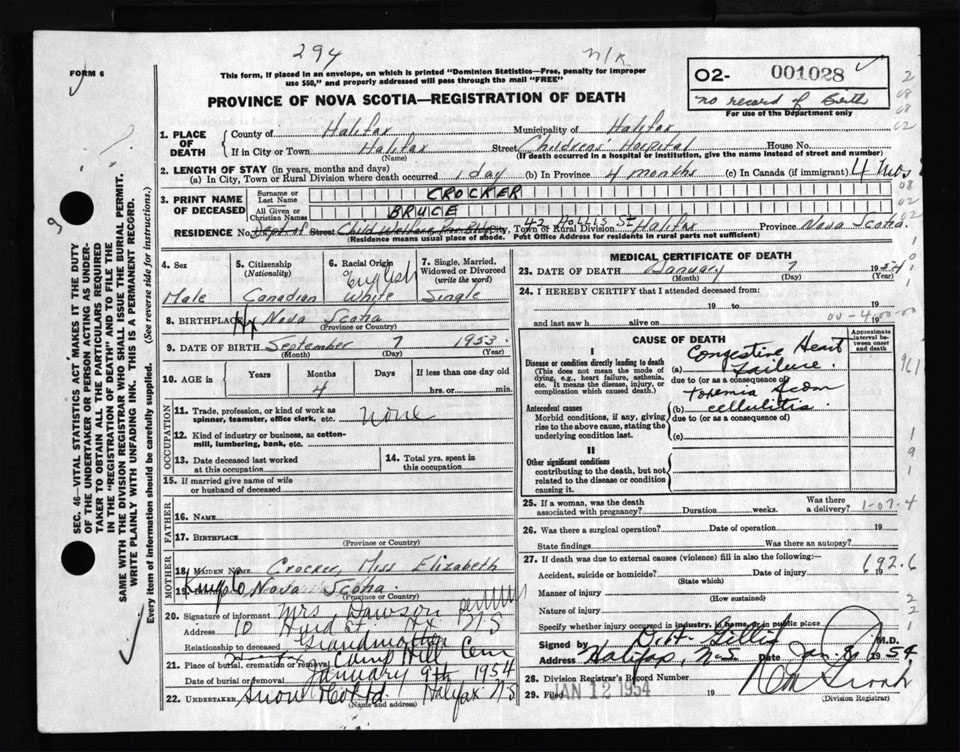 294
n/k.
FORM 6
This form, if placed in an envelope, on which is printed "Dominion Statistics—Free, penalty for improper
use $50," and properly addressed will pass through the mail "FREE"
O2- 001028
no record of Birth
For use of the Department only
PROVINCE OF NOVA SCOTIA—REGISTRATION OF DEATH
1. PLACE OF DEATH
County of Halifax Municipality of Halifax
If in City or Town Halifax Street Childrens' Hospital House No.
(Name) (If death occurred in a hospital or institution, give the name instead of street and number)
2. LENGTH OF STAY (in years, months and days)
(a) In City, Town or Rural Division where death occurred 1 day (b) In Province 4 months (c) In Canada (if immigrant) 4 mos
3. PRINT NAME OF DECEASED
Surname or Last Name CROCKER
All Given or Christian Names BRUCE
RESIDENCE No. Dept of Street Child Welfare City, Town or Rural Division 42 Hollis St Halifax Province Nova Scotia
(Residence means usual place of abode. Post Office Address for residents in rural parts not sufficient)
4. Sex
Male
5. Citizenship
(Nationality)
Canadian
6. Racial Origin
English
White
7. Single, Married,
Widowed or Divorced
(write the word)
Single
8. BIRTHPLACE Hx Nova Scotia
(Province or Country)
9. DATE OF BIRTH September 7 1953.
(Month) (Day) (Year)
10. AGE in
Years Months Days If less than one day old
4 hrs. or min.
OCCUPATION
11. Trade, profession, or kind of work as
spinner, teamster, office clerk, etc. None
12. Kind of industry or business, as cotton-
mill, lumbering, bank, etc.
13. Date deceased last worked
at this occupation
14. Total yrs. spent in
this occupation
15. If married give name of wife
or husband of deceased
FATHER
16. Name
17. Birthplace
(Province or Country)
MOTHER
18. Maiden Name Crocker, Miss Elizabeth
19. Nova Scotia.
(Province or Country)
20. Signature of informant Mrs Dawson
Address 10 Hurd St. Hx NS
Relationship to deceased Grandmother
21. Place of burial, cremation or removal Camp Hill Cem
Date of burial or removal January 9th 1954
22. UNDERTAKER Snow Co Ltd Halifax NS
(Name and address)
MEDICAL CERTIFICATE OF DEATH
23. DATE OF DEATH January 7 1954
(Month) (Day) (Year)
24. I HEREBY CERTIFY that I attended deceased from:
19 to 19
and last saw h alive on 19
00-4-00-00
CAUSE OF DEATH
Approximate
interval be-
tween onset
and death
I
Disease or condition directly leading to death
(This does not mean the mode of
dying, e.g., heart failure, asthenia,
etc. It means the disease, injury, or
complication which caused death.)
(a) Congestive Heart
Failure.
due to (or as a consequence of)
Antecedent causes
Morbid conditions, if any, giving
rise to the above cause, stating the
underlying condition last.
Toxemia from
(b) cellulitis.
due to (or as a consequence of)
(c)
II
Other significant conditions
contributing to the death, but not
related to the disease or condition
causing it.
25. If a woman, was the death
associated with pregnancy? Duration weeks. Was there
a delivery?
1-07-4
26. Was there a surgical operation? Date of operation 19
State findings Was there an autopsy?
27. If death was due to external causes (violence) fill in also the following:—
692.6
Accident, suicide or homicide? Date of injury 19
(State which)
Manner of injury
(How sustained)
Nature of injury
Specify whether injury occurred in industry, in home, or in public place
Signed by Gillis M.D.
Address Halifax, N-S Date Jan. 8 1954
28. Division Registrar's Record Number
29. Filed JAN 12 1954 19
(Division Registrar)
SEC. 46—VITAL STATISTICS ACT MAKES IT THE DUTY
OF THE UNDERTAKER OR PERSON ACTING AS UNDER-
TAKER TO OBTAIN ALL THE PARTICULARS REQUIRED
IN THE "REGISTRATION OF DEATH" AND TO FILE THE
SAME WITH THE DIVISION REGISTRAR WHO SHALL ISSUE THE BURIAL PERMIT.
WRITE PLAINLY WITH UNFADING INK. THIS IS A PERMANENT RECORD.
Every item of information should be carefully supplied. (See reverse side for instructions.)